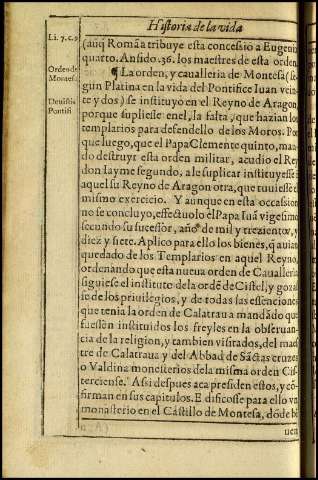 Historia de la vida
Li. 7. c. 9
(auq̃ Romãa tribuye esta concessiõ a Eugenio
quarto. An sido .36. los maestres de esta orden.
Orden de
Montesa.
¶ La orden, y caualleria de Montesa (se
gun Platina en la vida del Pontifice Iuan vein-
De vitis
Pontifi
te y dos) se instituyo en el Reyno de Aragon,
porque supliesse enel, la falta, que hazian los
templarios para defendello de los Moros. Por
que luego, que el Papa Clemente quinto, man-
do destruyr esta orden militar, acudio el Rey
don Iayme segundo, a le suplicar instituyesse ẽ
aquel su Reyno de Aragon otra, que tuuiesse el
mismo exercicio. Y aunque en esta occasion
no se concluyo, effectuolo el Papa Iuã vigesimo
secundo su sucessor, año de mil y trezientos, y
diez y siete. Aplico para ello los bienes, q̃ auian
quedado de los Templarios en aquel Reyno,
ordenando que esta nueua orden de Caualleria
siguiesse el instituto de la ordẽ de Cistel, y goza
se de los priuilegios, y de todas las essenciones
que tenia la orden de Calatrau a mandãdo que
fuessen instituidos los freyles en la obseruan-
cia de la religion, y tambien visitados, del maes
tre de Calatraua y del Abbad de Sãctas cruzes
o Valdina monesterios dela misma orden Cis-
terciense. Assi despues aca presiden estos, y cõ-
firman en sus capitulos. E dificosse para ello vn
monasterio en el Castillo de Montesa, dõde bi
uen